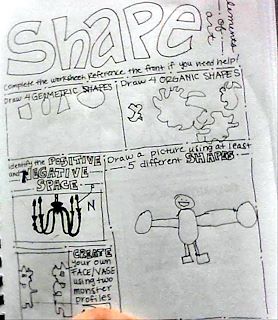 Shape
elements
of
art
Complete the worksheet. Reference the front if you need help!
Draw 4 GEOMETRIC SHAPES
Draw 4 ORGANIC SHAPES
Identify the POSITIVE
and NEGATIVE
SPACE
P
N
Draw a picture using at least
5 different SHAPES
CREATE
your own
FACE/VASE
using two
monster
profiles